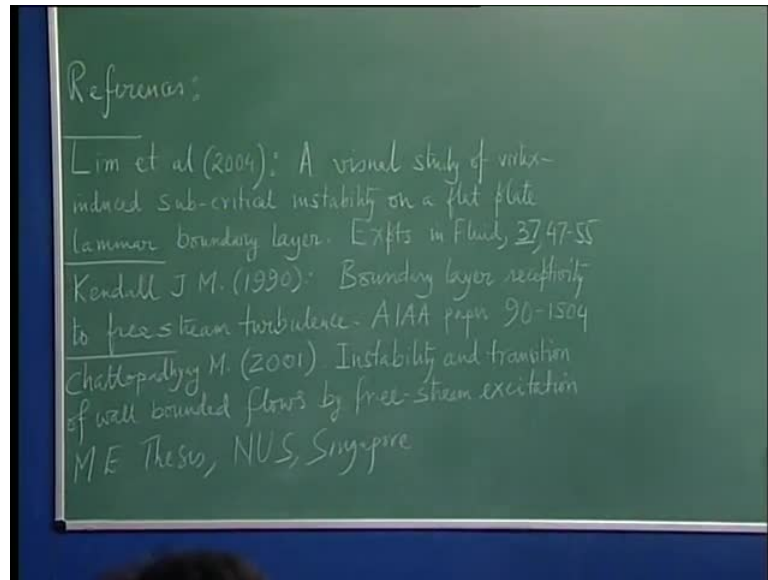 References:
Lim et al (2004): A visual study of vortex-
induced sub-critical instability on a flat plate
laminar boundary layer. Expts in Fluid, 37, 47-55
Kendall J M. (1990): Boundary layer receptivity
to free stream turbulence. AIAA paper 90-1504
Chattopadhyay M. (2001) Instability and transition
of wall bounded flows by free-stream excitation
M E Thesis, NUS, Singapore